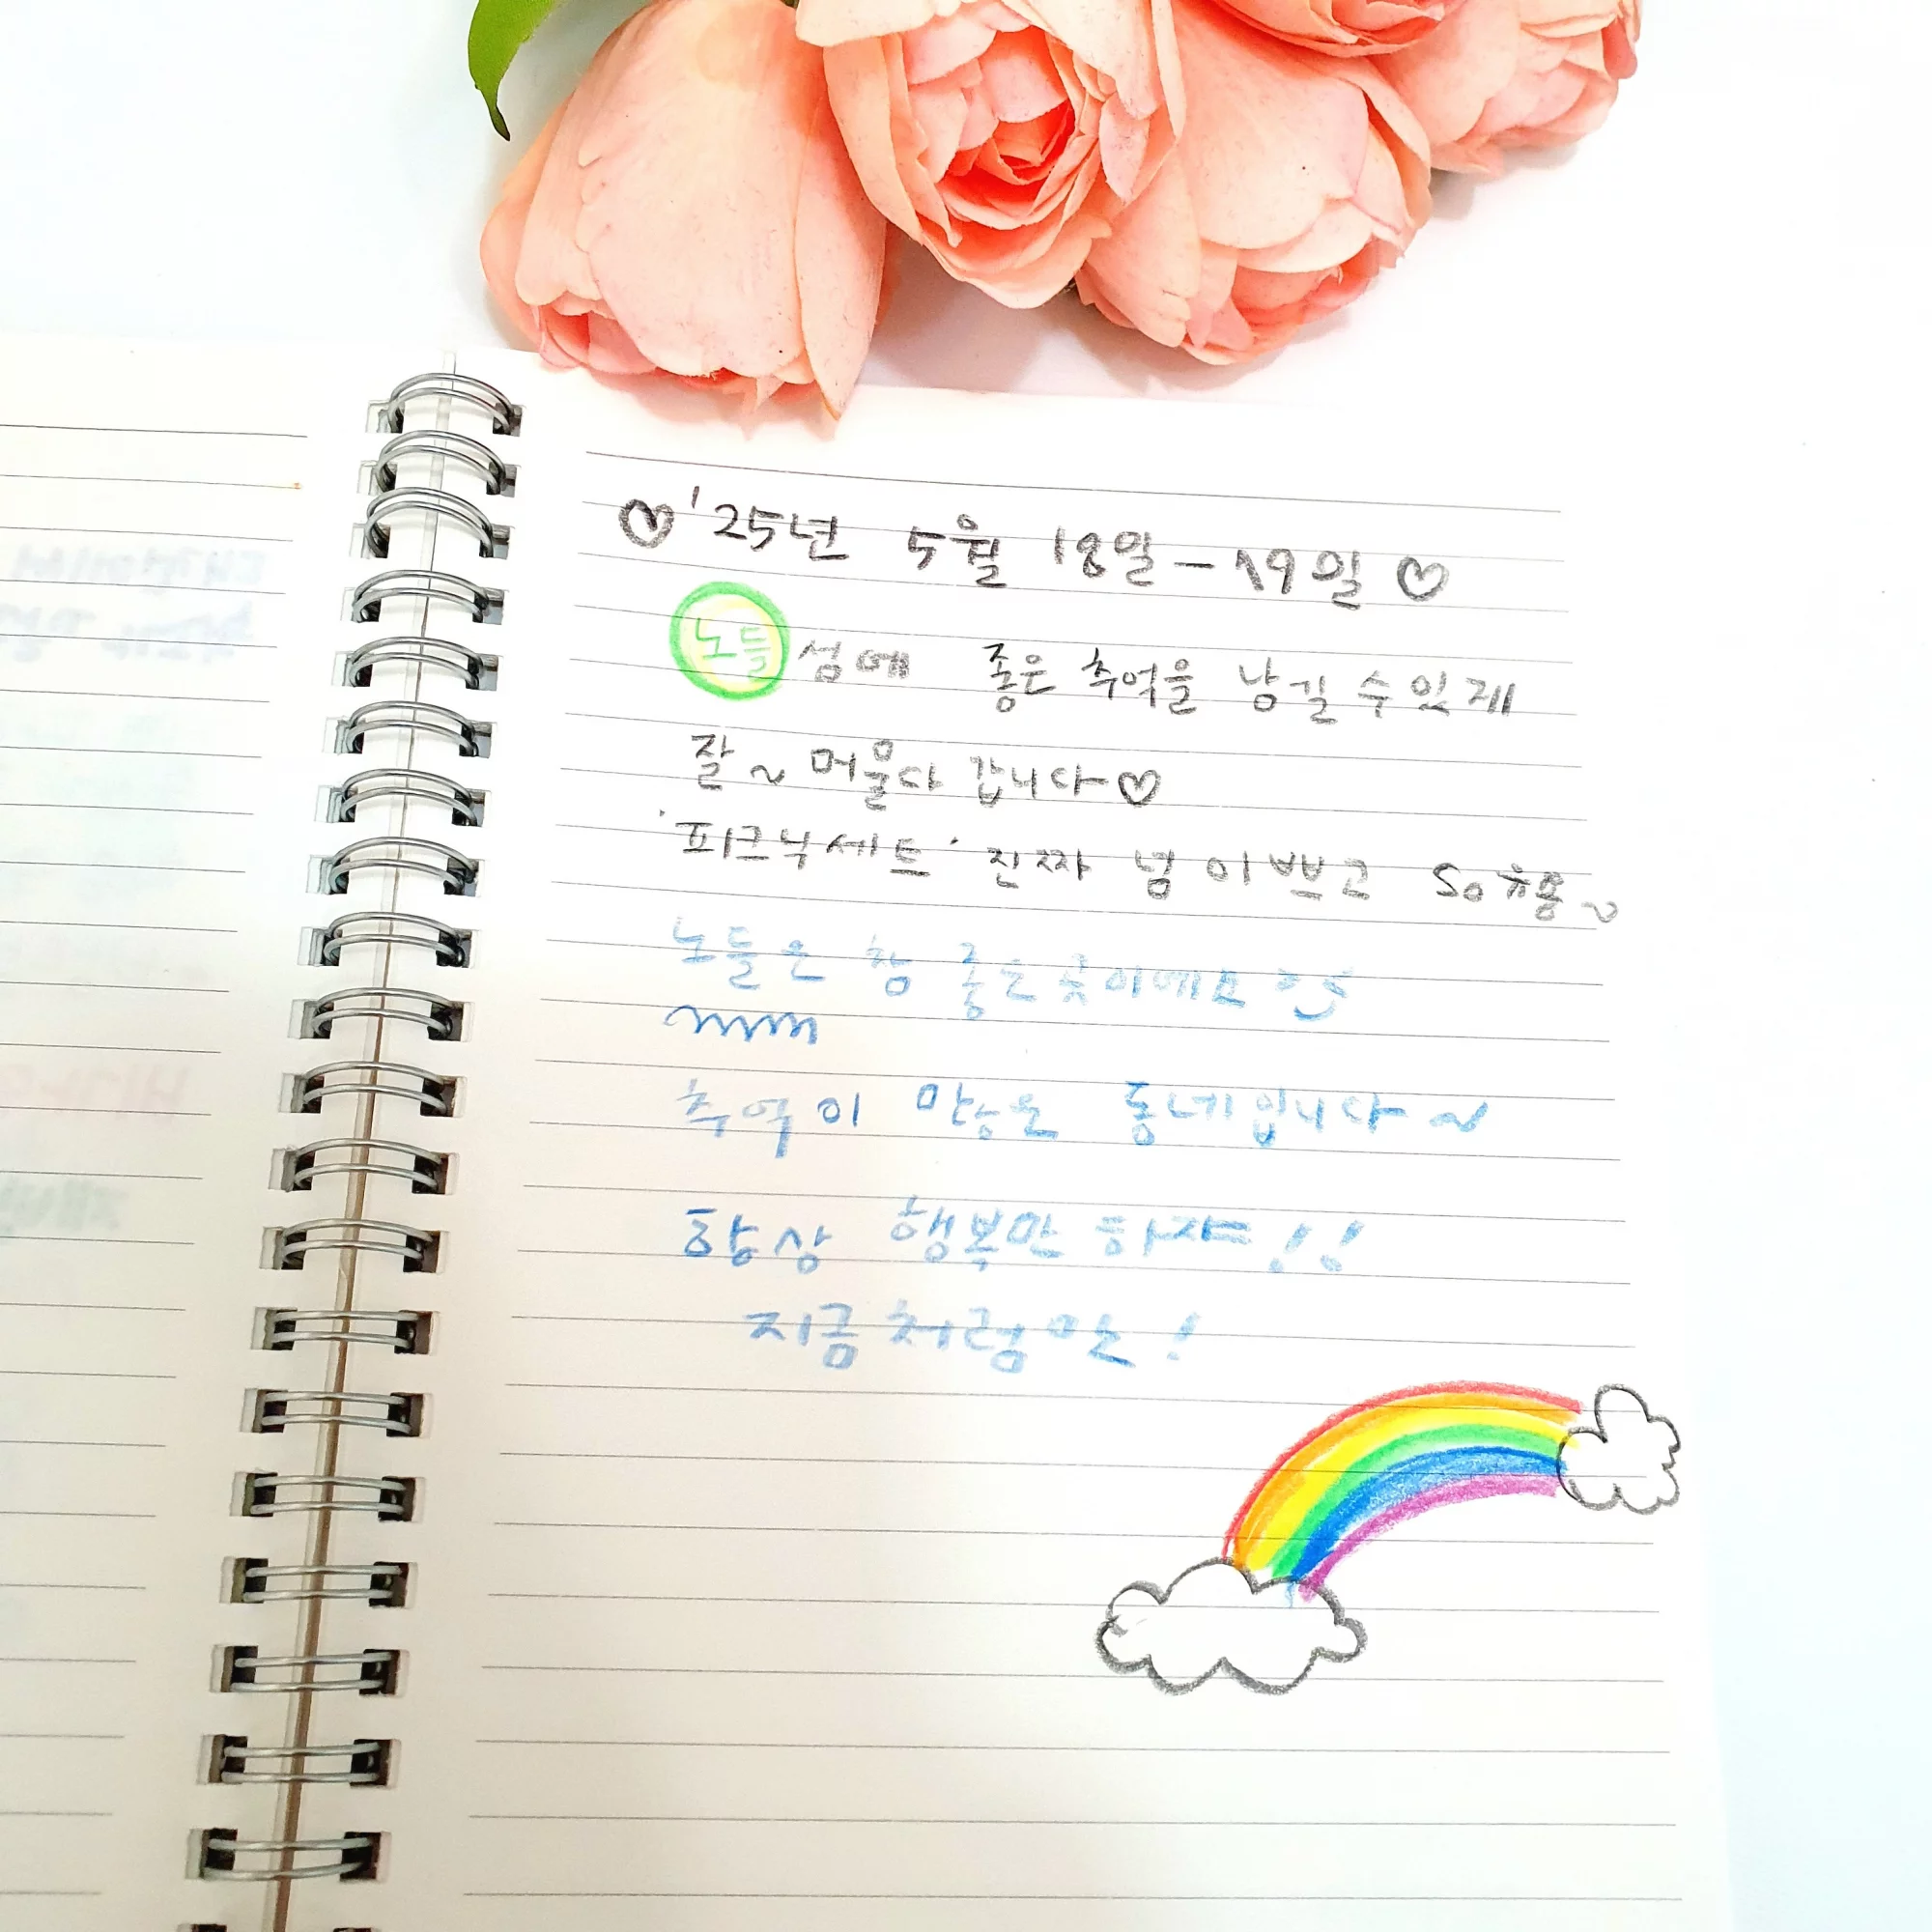 ♡'25년 5월 18일-19일♡
노들섬에 좋은 추억을 남길 수 있게
잘~ 머물다 갑니다♡
'피크닉세트' 진짜 넘 이쁘고 so 유용~
노들은 참 좋은 곳이에요
추억이 많은 동네입니다~
항상 행복만 하쟈!!
지금처럼만!